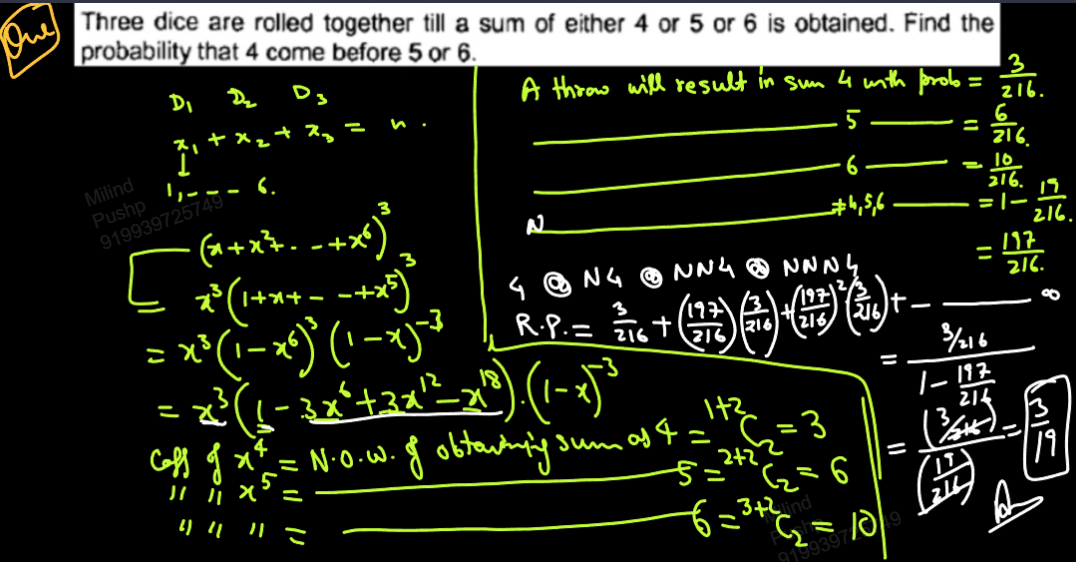 Que
Three dice are rolled together till a sum of either 4 or 5 or 6 is obtained. Find the
probability that 4 come before 5 or 6.
D₁ D₂ D₃
x₁ + x₂ + x₃ = n .
↓
1, - - - 6.
(x + x² + . - + x⁶)³
x³ (1 + x + - - + x⁵)³
= x³ (1 - x⁶)³ (1 - x)⁻³
= x³ (1 - 3x⁶ + 3x¹² - x¹⁸) . (1 - x)⁻³
Coff of x⁴ = N.O.W. of obtaining sum as 4 = ¹⁺²C₂ = 3
" " x⁵ = ——— 5 = ²⁺²C₂ = 6
" " " = ——— 6 = ³⁺²C₂ = 10
A throw will result in sum 4 with prob = 3/216.
——— 5 ——— = 6/216.
——— 6 ——— = 10/216.
N ——— ≠4,5,6 ——— = 1 - 19/216.
= 197/216.
4 or N4 or NNN4 or NNNN4
R.P. = 3/216 + (197/216)(3/216) + (197/216)²(3/216) + - ——— ∞
= (3/216) / (1 - 197/216)
= (3/216) / (19/216) = 3/19
Milind
Pushp
919939725749